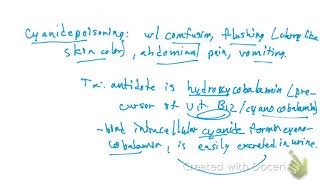 Cyanide poisoning: w/ confusion, flushing (cherry like
skin color), abdominal pain, vomiting.
Tx: antidote is hydroxycobalamin (pre-
cursor of vit B12/cyanocobalamin)
- bind intracellular cyanide forming cyano-
cobalamin, is easily excreted in urine.
Created with Doceri